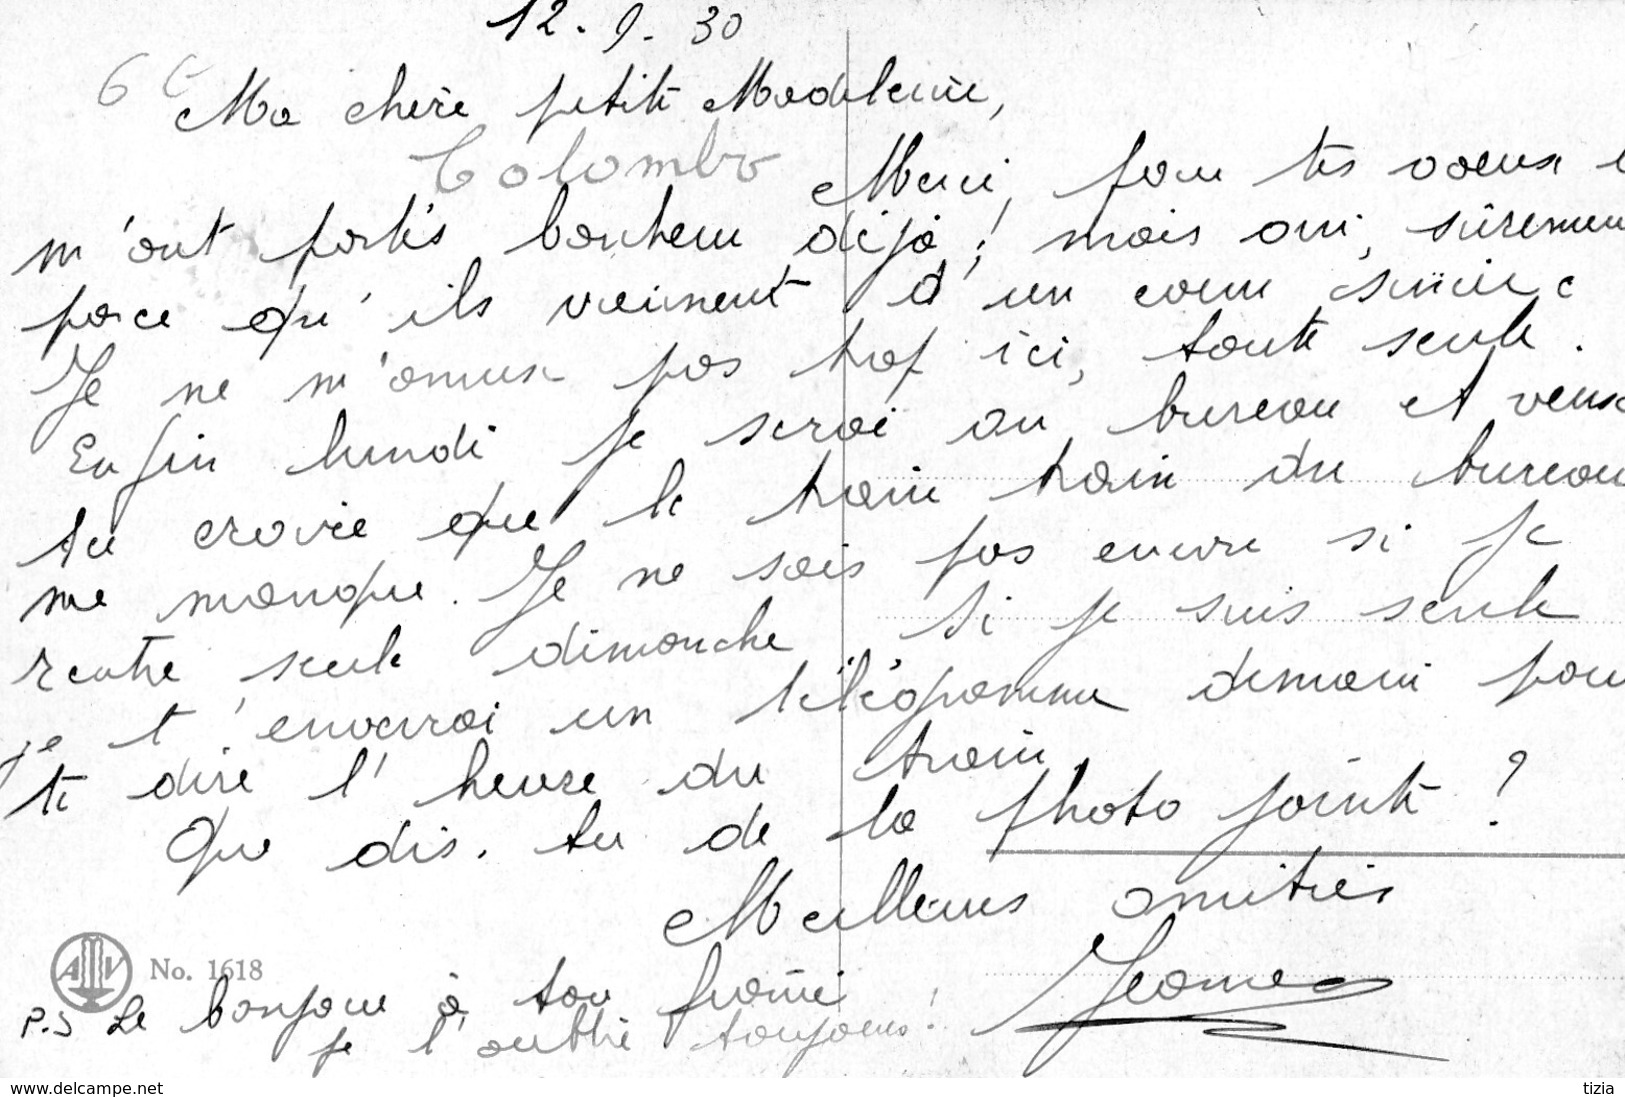 12. 9. 30
6 €
Ma chère petite Madeleine,
Colombo
Merci, pour tes voeux
m'ont portés bonheur déjà! mais oui, sûrement
parce qu'ils viennent d'un coeur sincère
Je ne m'amuse pas trop ici, toute seule.
Enfin lundi je serai au bureau et veux
tu croire que le train train du bureau
me manque. Je ne sais pas encore si je
rentre seule dimanche Si je suis seule
je t'enverrai un télégramme demain pour
te dire l'heure du train
Que dis-tu de la photo jointe ?
Meilleures amitiés
Jeanne
No. 1618
P.S Le bonjour à ton fiancé
je l'oublie toujours!
www.delcampe.net
tizia